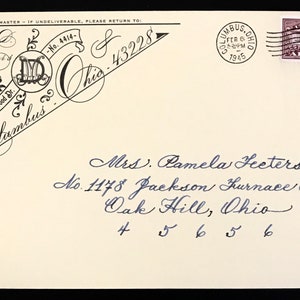 MASTER — IF UNDELIVERABLE, PLEASE RETURN TO:
No. 4414
Columbus, Ohio 43228
COLUMBUS, OHIO
FEB 6
PM
1945
Mrs. Pamela Teeters
No. 1178 Jackson Furnace
Oak Hill, Ohio
4 5 6 5 6